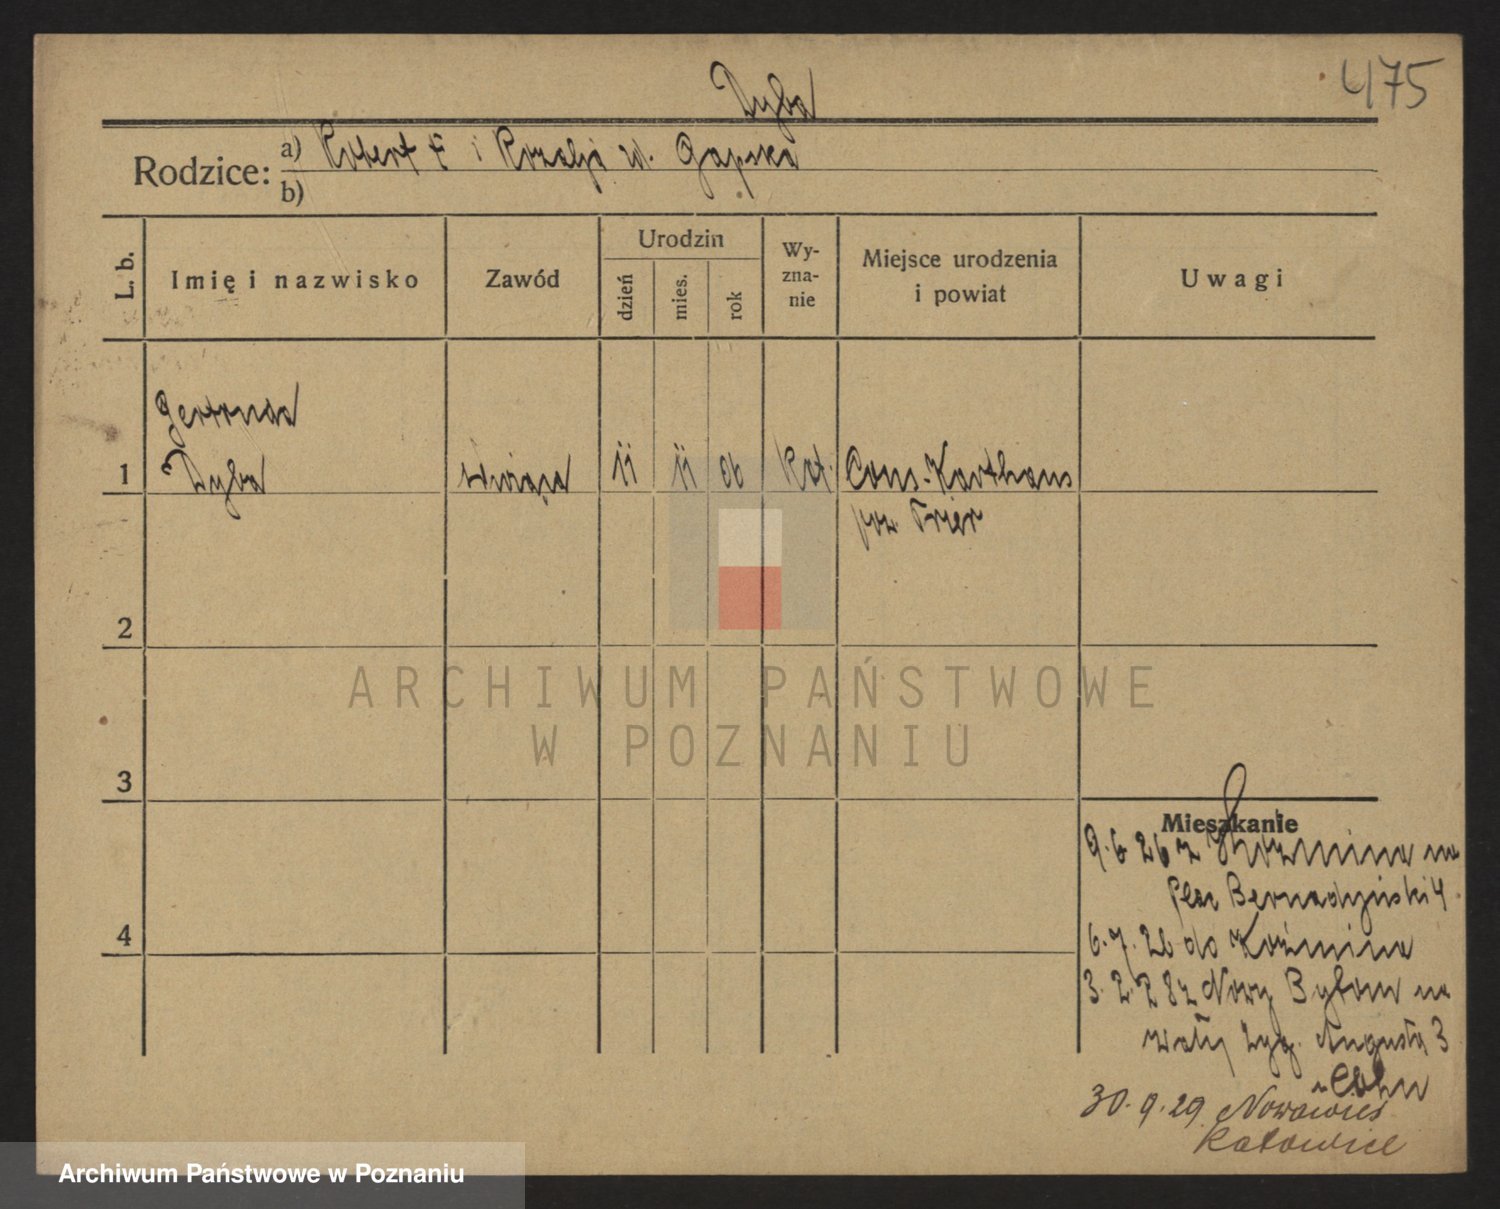 475
Dyba
Rodzice: a) Robert i Rozalja Gapska
b)
L. b.
Imię i nazwisko
Zawód
Urodzin
dzień
mies.
rok
Wy-
zna-
nie
Miejsce urodzenia
i powiat
Uwagi
Gertruda
1 Dyba 11 11 06 kat. Cons. Karthaus
pow. Trier
2
3
4
ARCHIWUM PAŃSTWOWE
W POZNANIU
Mieszkanie
9.6 26 z Koźmina na
Plac Bernadyński 4
6.7.26 do Koźmina
3.2. 28 z Nowy Bytom na
Wały Zyg. Augusta 3
30.9.29 Nowawieś
Katowice
Archiwum Państwowe w Poznaniu